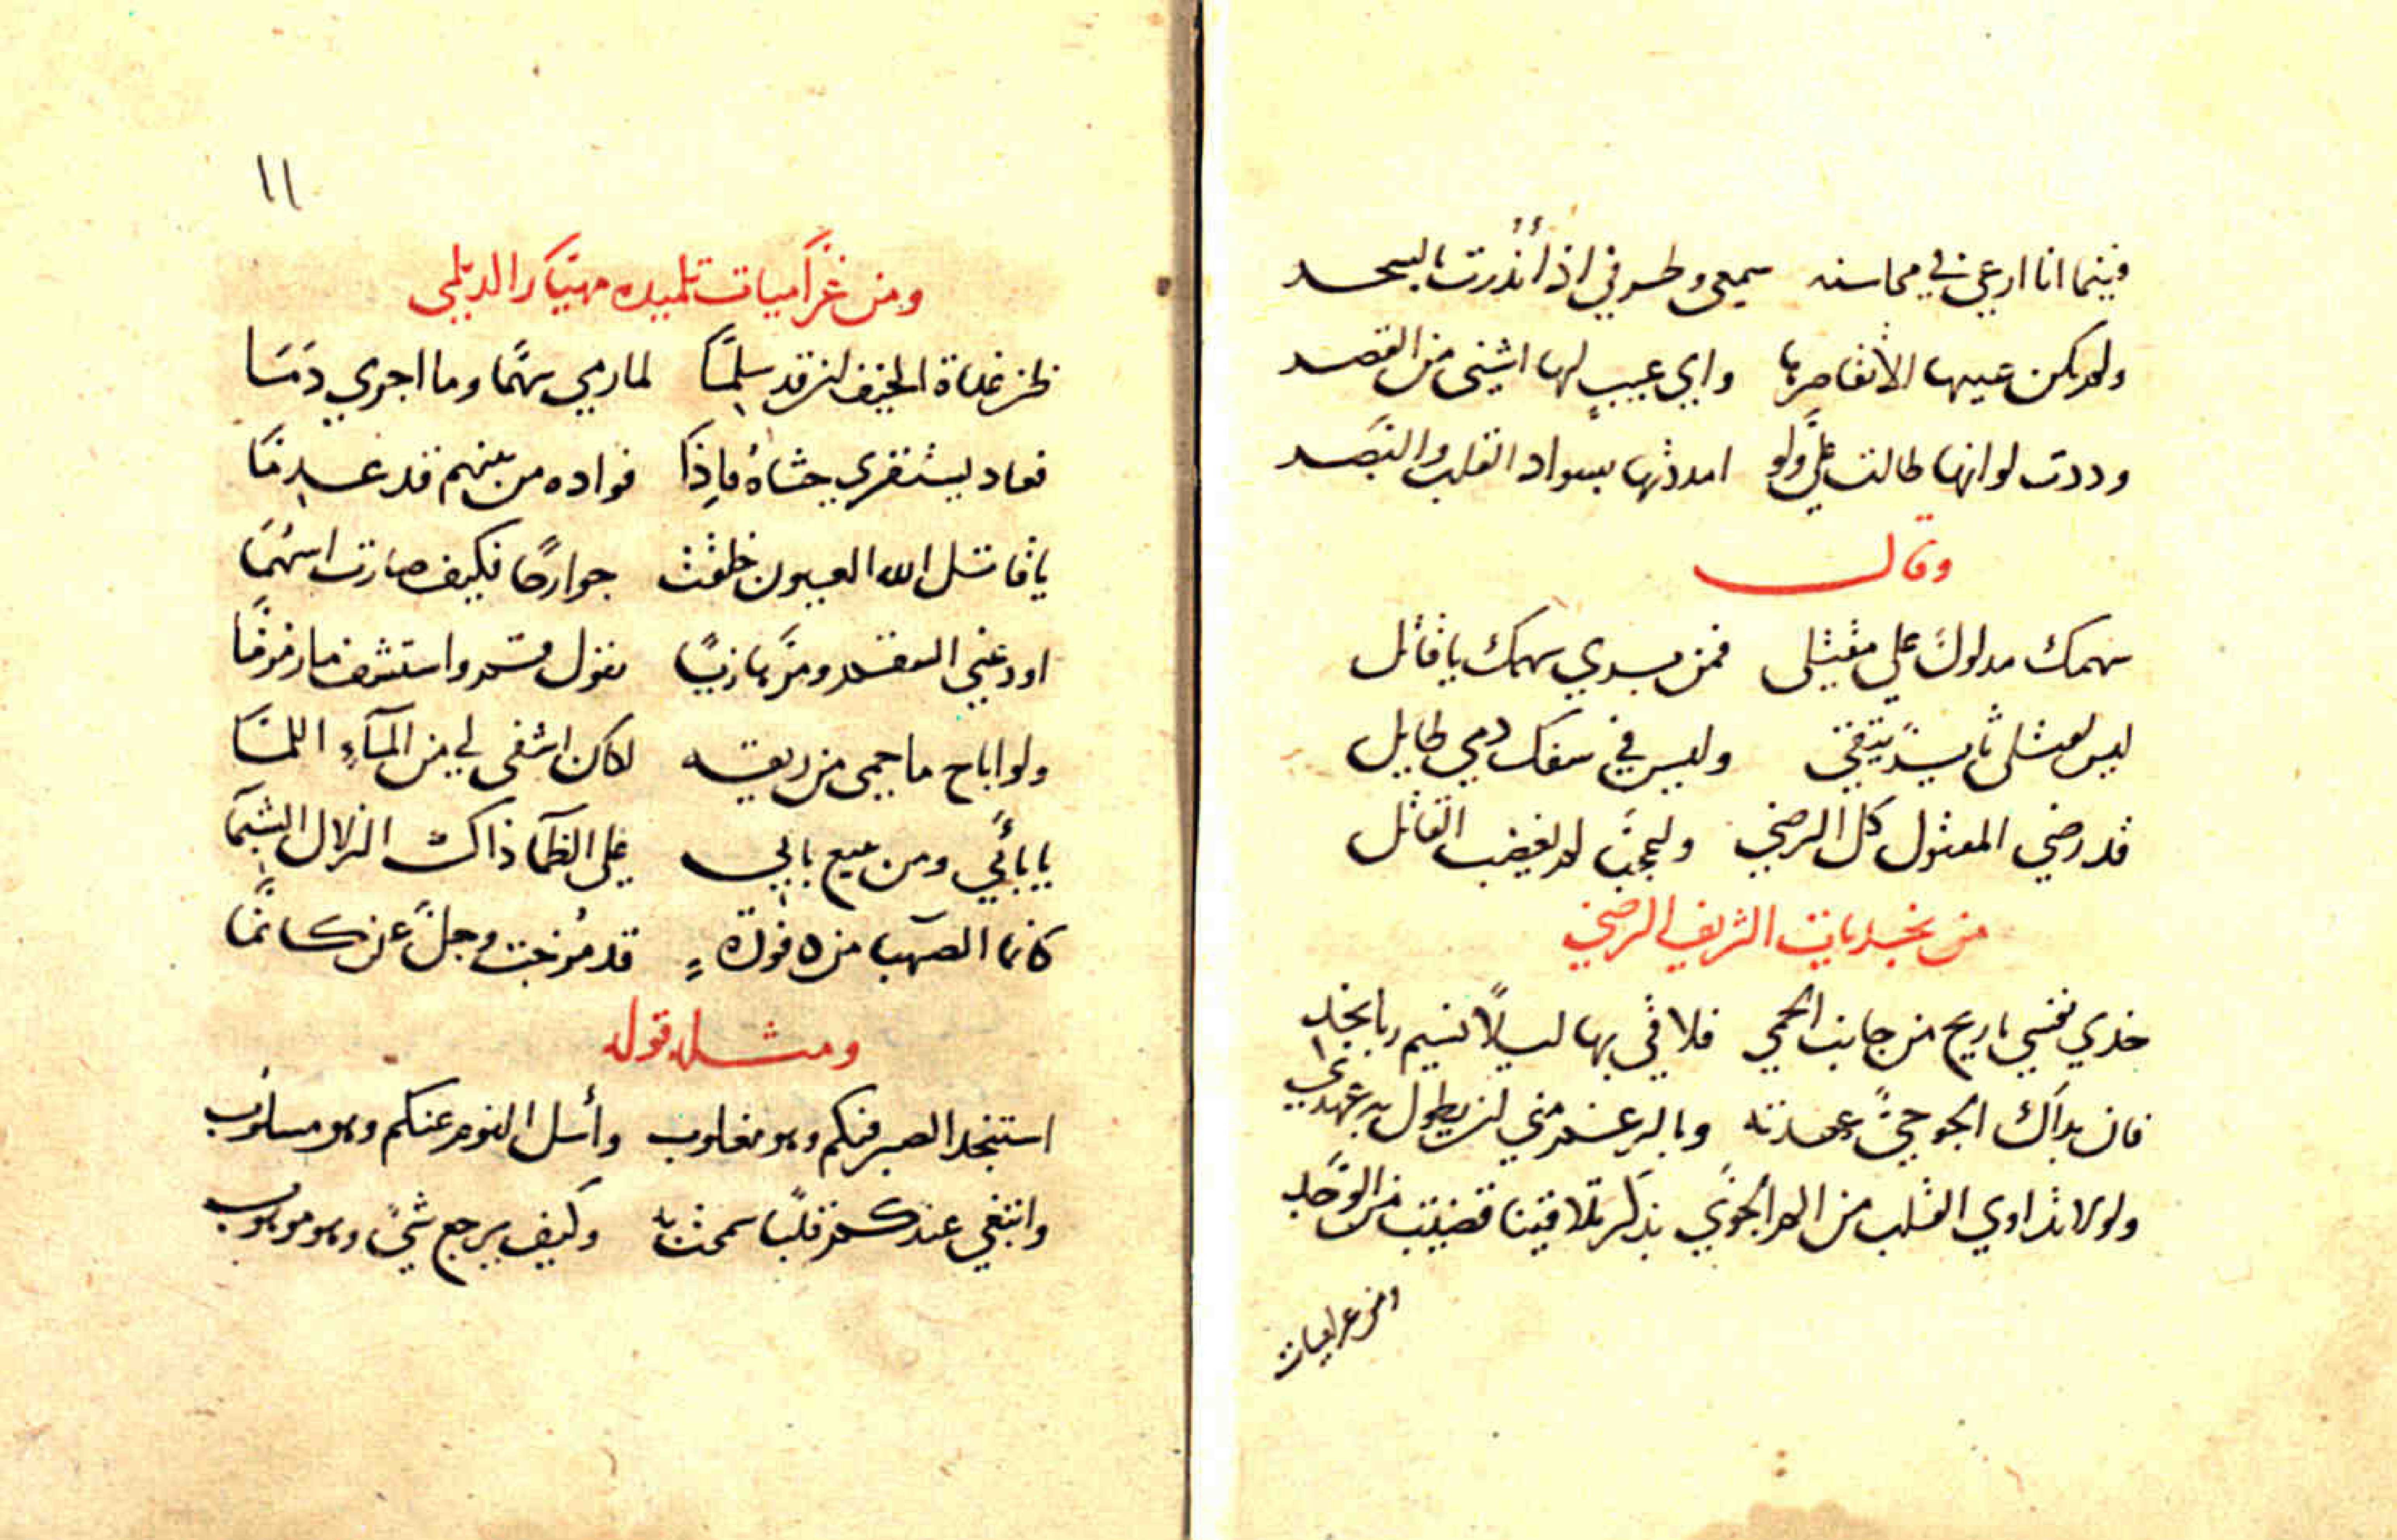 فبينما انا ارعي في محاسنه سمعي وطرفي اذ أنذرت بالسحر
ولم يكن عيبها الا تقاصرها واي عيب لها اشنى من القصر
وددت لو انها طالت علي ولو امددتها بسواد القلب والبصر
وقال
سهمك مدلول على مقتلي فمن يدي سهمك يا قاتل
ليس لقتلي ثاير يتقى وليس في سفك دمي طايل
قد رضي المقتول كل الرضي واعجبا لم يغضب القاتل
من نجديات الشريف الرضي
خذي نفسي ياريح من جانب الحمي فلاقي بها ليلا نسيم ربا نجد
فان بذاك الجو حي عهدته وبالرغم مني ان يطول به عهدي
ولولا تداوي القلب من الم الجوي بذكر تلاقينا قضيت من الوجد
ومن غراميات
١١
ومن غراميات تلميذه مهيار الديلمي
ظن غداة الخيف ان قد سلما لما رمي سهما وما اجري دما
فعاد يستقري حشاه فاذا فواده من بينهم قد عدما
يا قاتل الله العيون خلقت جوارحا فكيف صارت اسهما
اودعني السقم ومر هازيا يقول قم واستشف ما زمزما
ولو اباح ما حمى من ريقه لكان اشفى لي من المآء اللما
يا بأبي ومن يبيع بابي على الظما ذاك الزلال الشبما
كانما الصهبا من فوه قد مزجت وجل عن كانما
ومثله قوله
استنجد الصبر فيكم وهو مغلوب وأسل النوم عنكم وهو مسلوب
وابتغي عندكم قلبا سمحت به وكيف يرجع شي وهو موهوب